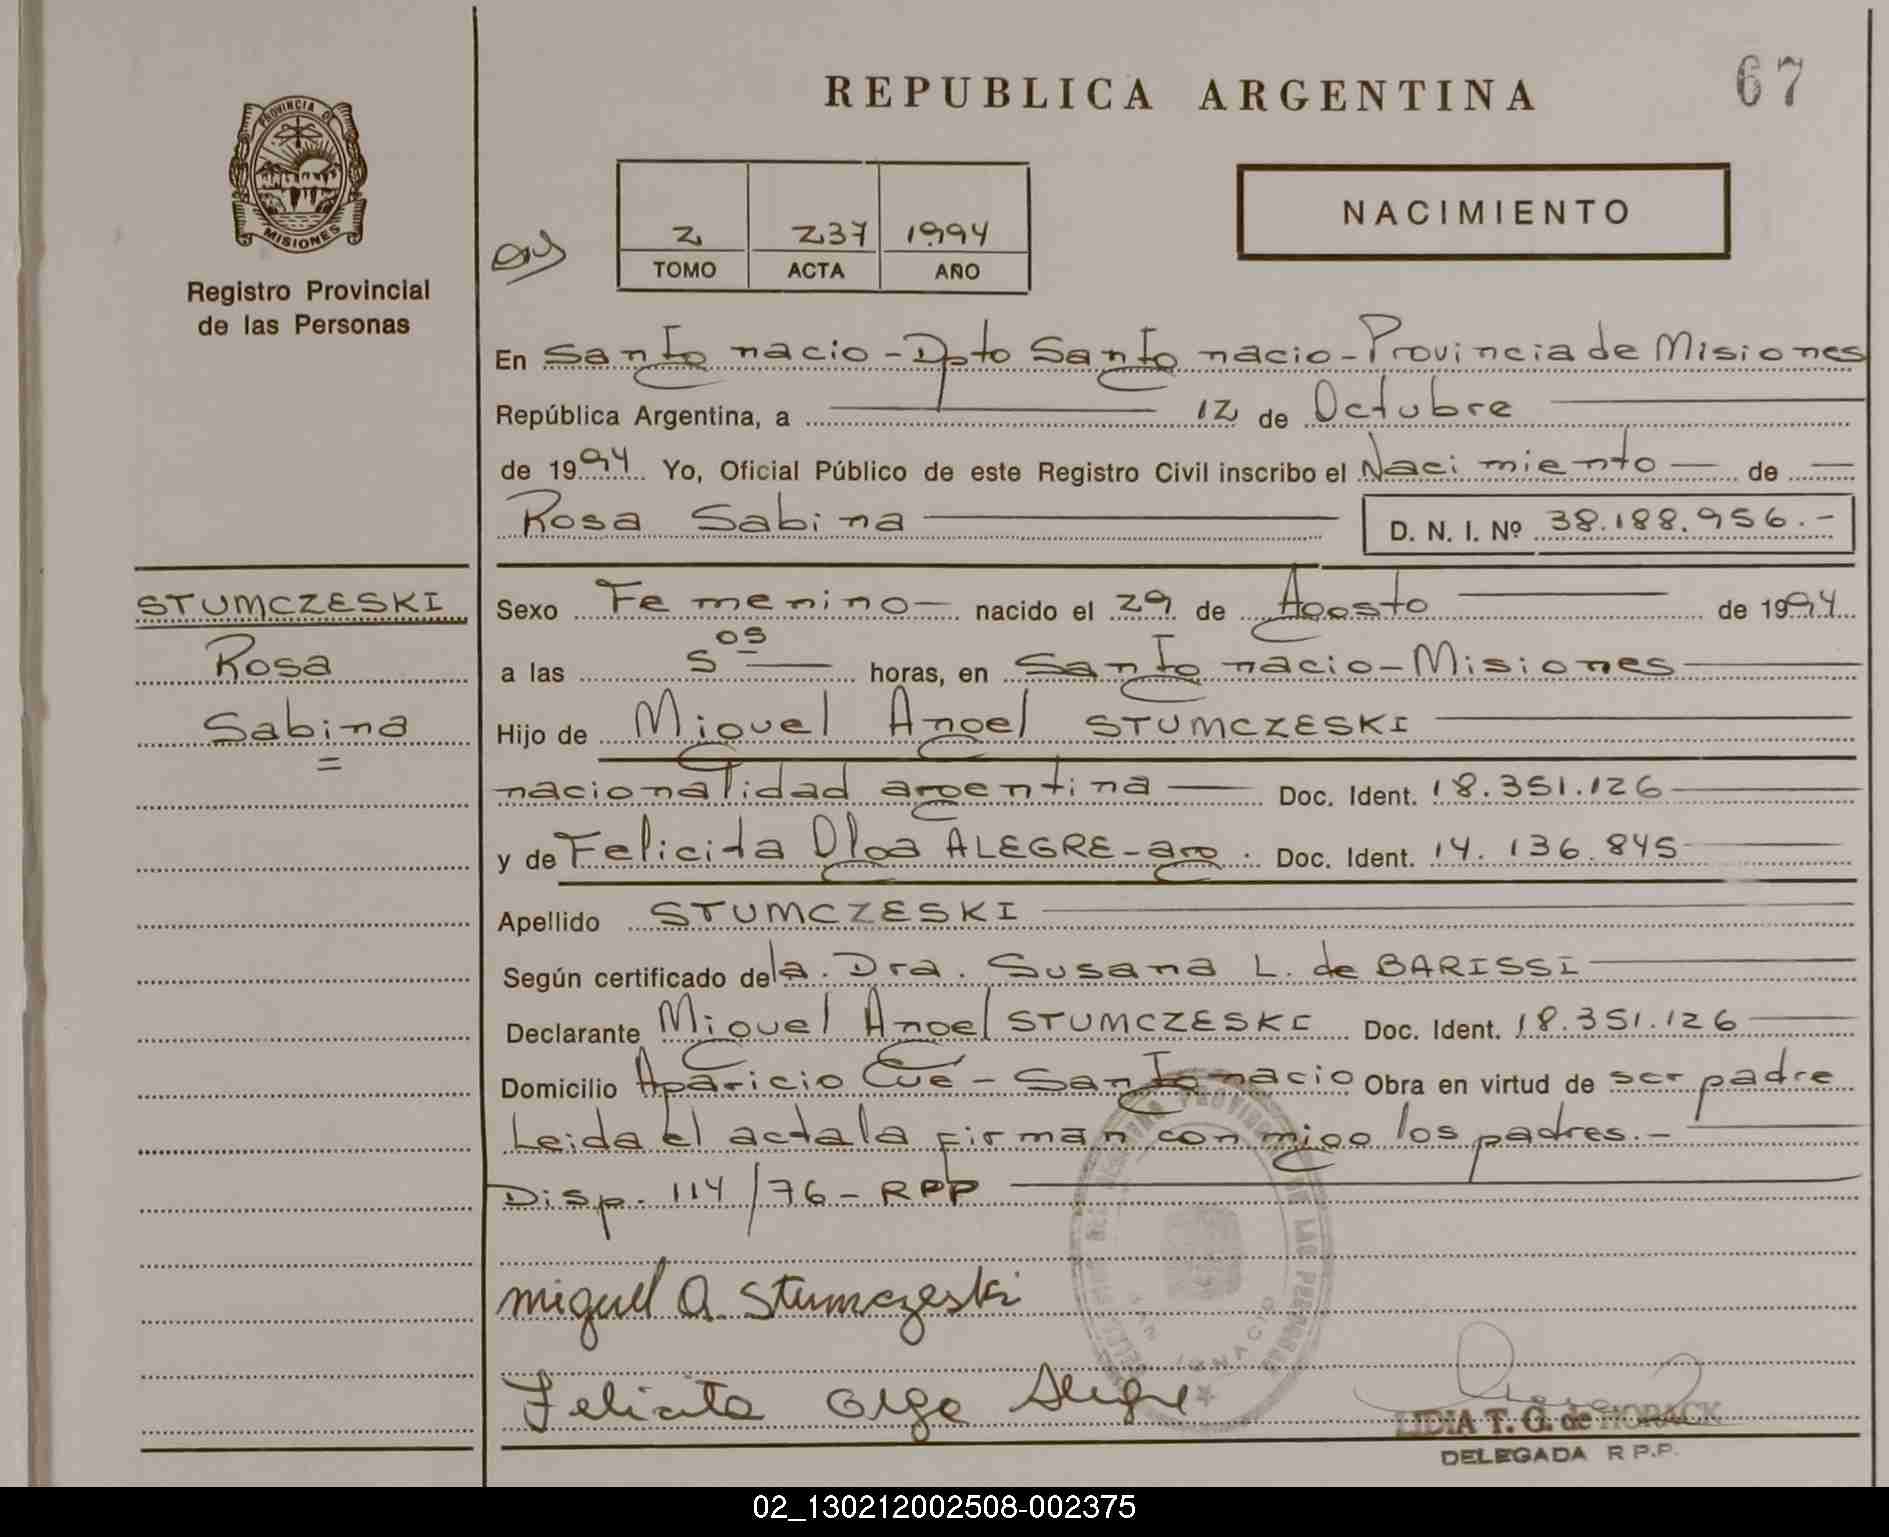 67
REPUBLICA ARGENTINA
PROVINCIA DE
MISIONES
Registro Provincial
de las Personas
2 237 1994
TOMO ACTA AÑO
NACIMIENTO
En San Ignacio - Dpto San Ignacio - Provincia de Misiones
República Argentina, a 12 de Octubre
de 1994 Yo, Oficial Público de este Registro Civil inscribo el Nacimiento de
Rosa Sabina D. N. I. Nº 38.188.956.-
STUMCZESKI
Rosa
Sabina
Sexo Femenino nacido el 29 de Agosto de 1994
a las 5 05 horas, en San Ignacio - Misiones
Hijo de Miguel Angel STUMCZESKI
nacionalidad argentina Doc. Ident. 18.351.126
y de Felicita Olga ALEGRE - arg. Doc. Ident. 14.136.845
Apellido STUMCZESKI
Según certificado de la Dra. Susana L. de BARISSI
Declarante Miguel Angel STUMCZESKI Doc. Ident. 18.351.126
Domicilio Aparicio Cue - San Ignacio Obra en virtud de ser padre
Leida el acta la firman conmigo los padres.-
Disp. 114/76 - RPP
Miguel A. Stumczeski
Felicita Olga Alegre
SAN IGNACIO
LIDIA T. G. de HORACK
DELEGADA R.P.P.
02_130212002508-002375